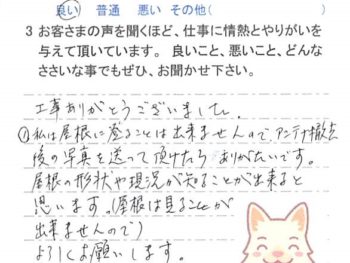 良い 普通 悪い その他( )
3 お客さまの声を聞くほど、仕事に情熱とやりがいを
与えて頂いています。 良いこと、悪いこと、どんな
ささいな事でもぜひ、お聞かせ下さい。
工事ありがとうございました。
①私は屋根に登ることは出来ませんので、アンテナ撤去
後の写真を送って頂けたら ありがたいです。
屋根の形状や現況が知ることが出来ると
思います。(屋根は見ることが
出来ませんので)
よろしくお願いします。